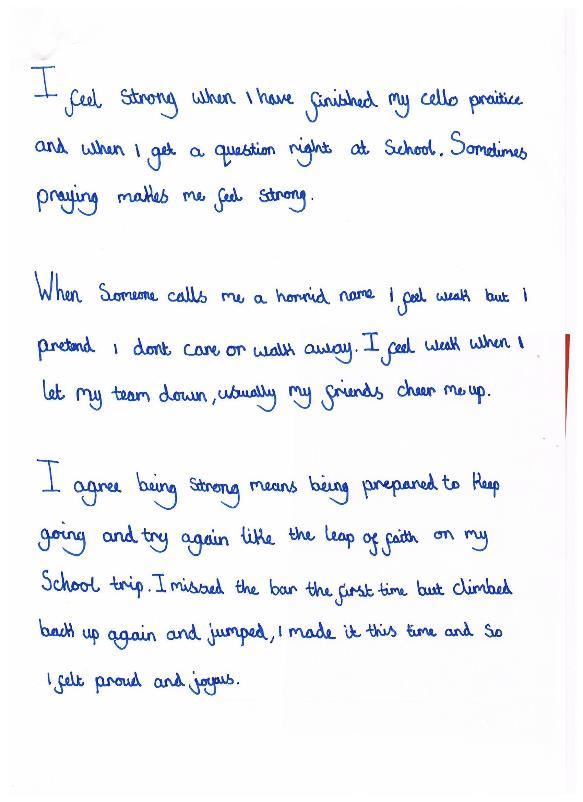 I feel strong when I have finished my cello praitice
and when I get a question right at School. Sometimes
praying makes me feel strong.
When Someone calls me a horrid name I feel weak but I
pretend I dont care or walk away. I feel weak when I
let my team down, usually my friends cheer me up.
I agree being Strong means being prepared to keep
going and try again like the leap of faith on my
School trip. I missed the bar the first time but climbed
back up again and jumped, I made it this time and so
I felt proud and joyous.